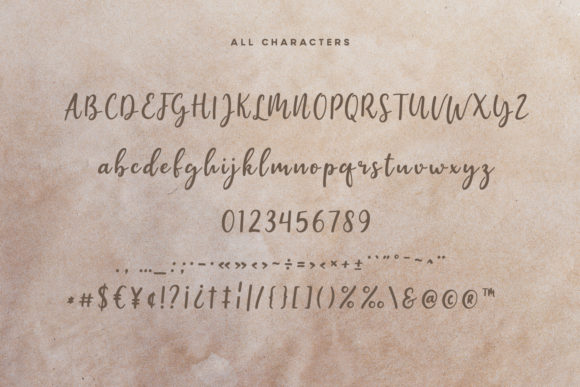 ALL CHARACTERS
ABCDEFGHIJKLMNOPQRSTUVWXYZ
abcdefghijklmnopqrstuvwxyz
0123456789
.,…_:;·-·«»‹›~÷=><×+±
*#$€¥¢!?¡¿†‡¦|/{}[]()%‰\&@©®™